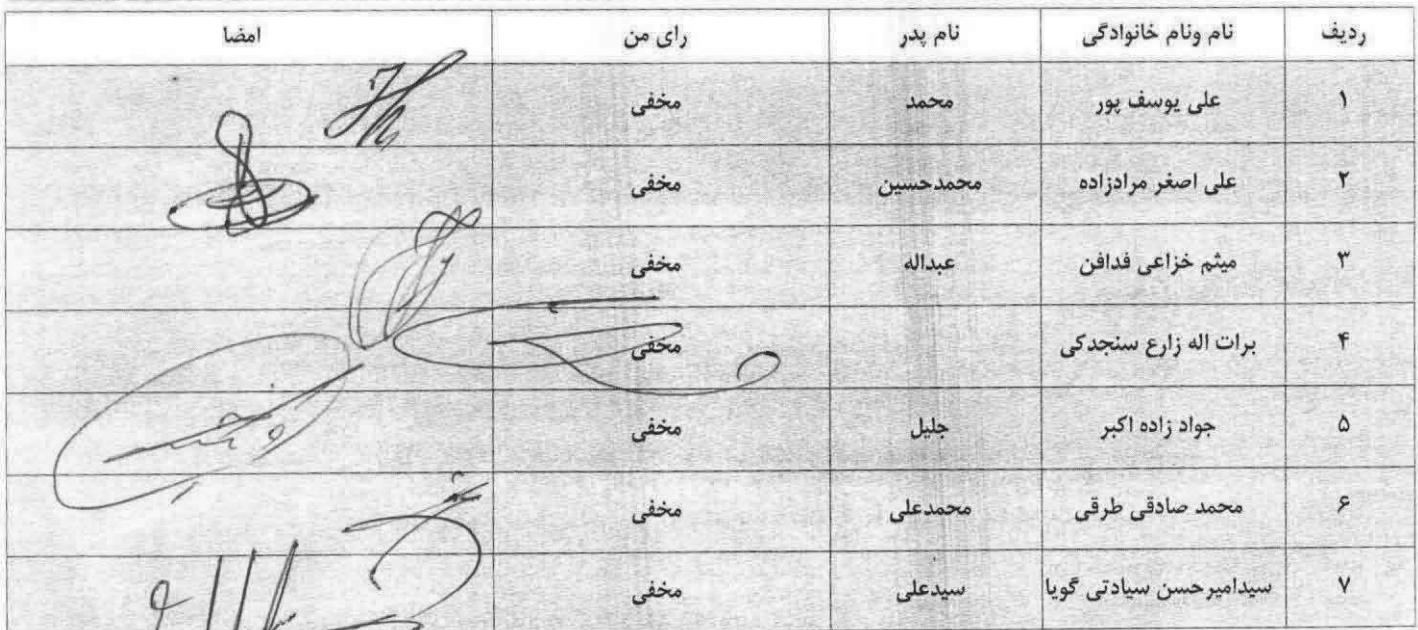 ردیف نام ونام خانوادگی نام پدر رای من امضا
۱ علی یوسف پور محمد مخفی
۲ علی اصغر مرادزاده محمدحسین مخفی
۳ میثم خزاعی فدافن عبداله مخفی
۴ برات اله زارع سنجدکی مخفی
۵ جواد زاده اکبر جلیل مخفی
۶ محمد صادقی طرقی محمدعلی مخفی
۷ سیدامیرحسن سیادتی گویا سیدعلی مخفی